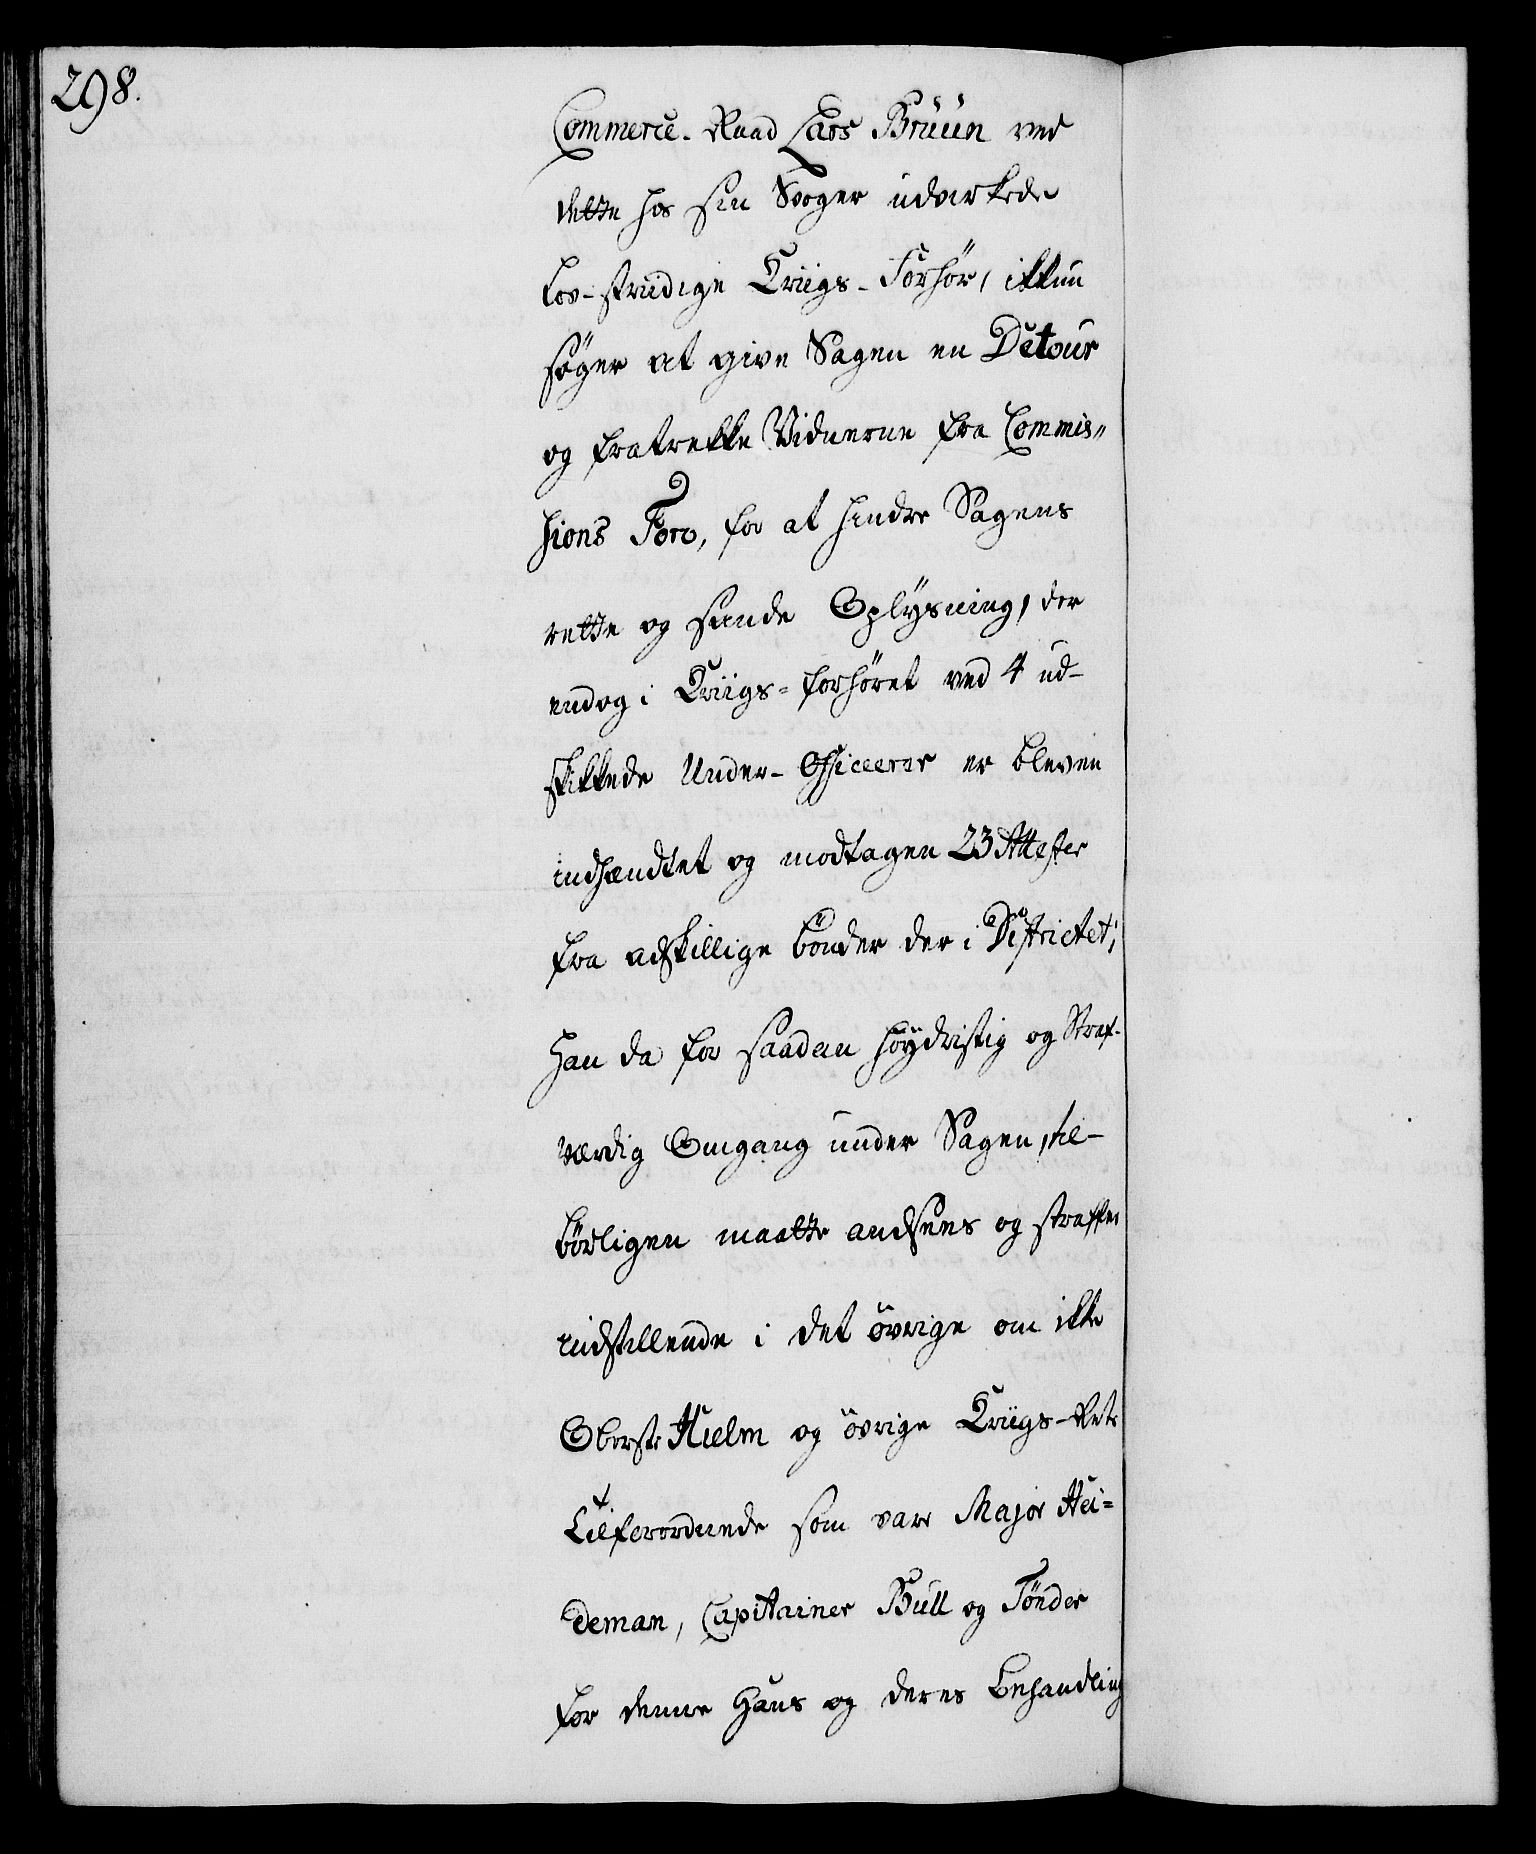 298.
Commerce-Raad Lars Bruun ved
dette hos sin Svoger udvirkede
lov-striidige Kriigs-Forhör, ikkun
söger at give Sagen en Detour
og fratrekke Vidnerne fra Commis„
sions Foro, for at hindre Sagens
rette og sande Oplysning, der
endog i Kriigs-forhöret ved 4 ud-
skikkede Under-Officerer er bleven
indhændtet og modtagen 23 Attester
fra adskillige bönder der i Districtet,
Han da for saadan höydristig og Straf-
værdig Omgang under Sagen, til-
börligen maatte andsees og straffes
indstillende i det övrige om ikke
Oberste Hielm og övrige Kriigs-Rets
Tilforordnede som vare Major Hei=
deman, Capitainer Bull og Tönder
for denne Hans og deres Behandling